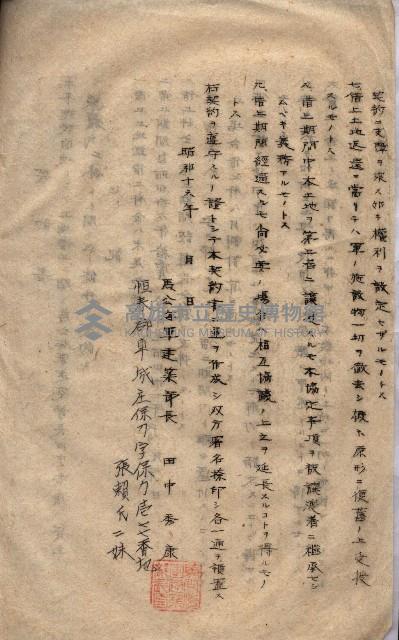 契約ニ支障ヲ来ス如キ権利ヲ設定セザルモノトス
七、借上土地返還ニ當リテハ軍ノ施設物一切ヲ撤去シ原形ニ復舊ノ上交換
スルモノトス
八、借上期間中本土地ヲ第三者ニ譲渡スルモ本協定事項ヲ被譲渡者ニ継承セシ
ムベキ義務アルモノトス
九、借上期間經過スルモ尚必要ノ場合ハ相互協議ノ上之ヲ延長スルコトヲ得ルモノ
トス
右契約ヲ遵守スルノ證トシテ本契約書二通ヲ作成シ双方署名捺印シ各一通ヲ領置ス
昭和十六年 月 日
馬公海軍建築部長 田中秀康
恒春郡車城庄保力字保力壱七番地
張頼氏二妹
高雄市立歷史博物館
KAOHSIUNG MUSEUM OF HISTORY